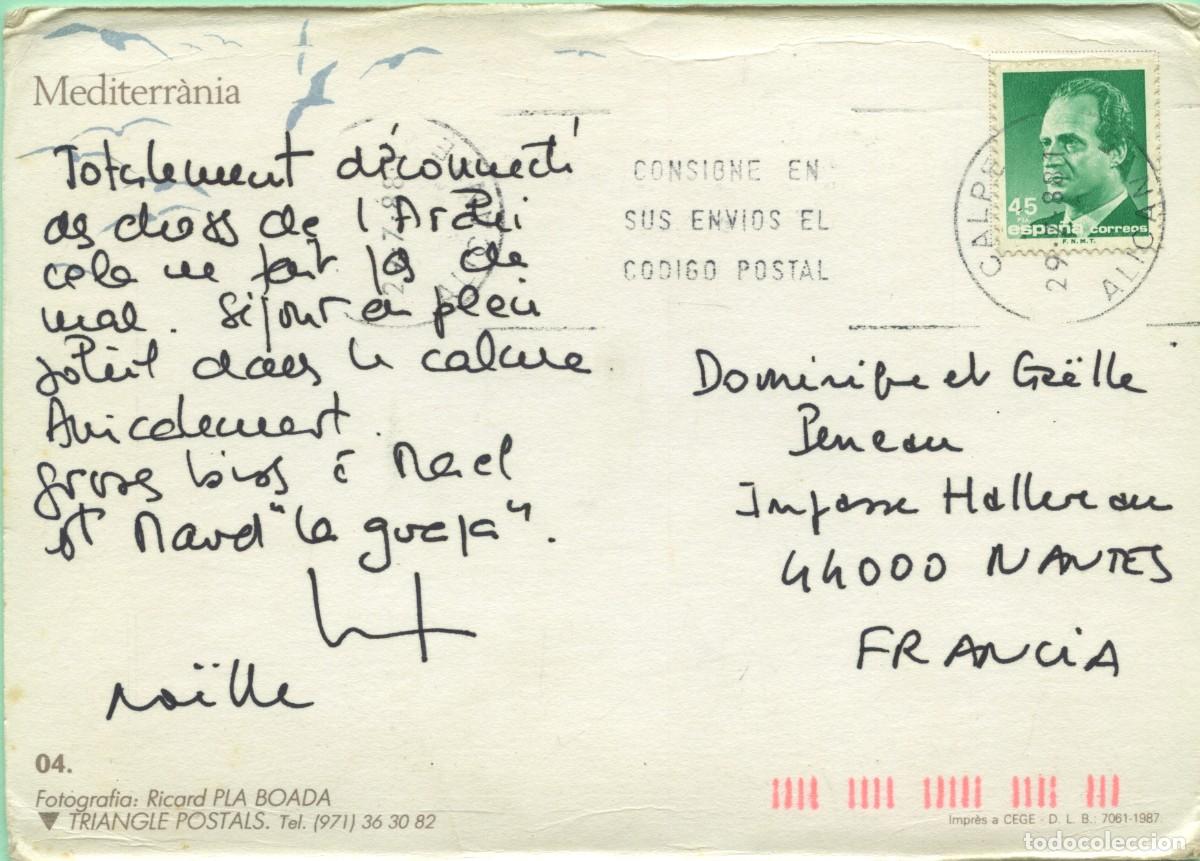 Mediterrània
Totalement déconnecté
des choses de l'Ardri
cela ne fait pas de
mal. Séjour en plein
soleil dans le calme
Amicalement.
gross bises à Mael
et Maud "la guapa".
Noëlle
04.
Fotografia: Ricard PLA BOADA
TRIANGLE POSTALS. Tel. (971) 36 30 82
CONSIGNE EN
SUS ENVIOS EL
CODIGO POSTAL
CALPE
ALICANTE
45
PTA
españa correos
F.N.M.T.
Dominique et Gaëlle
Peneau
Impasse Hallereau
44000 NANTES
FRANCIA
Imprès a CEGE - D. L. B.: 7061-1987
todocoleccion